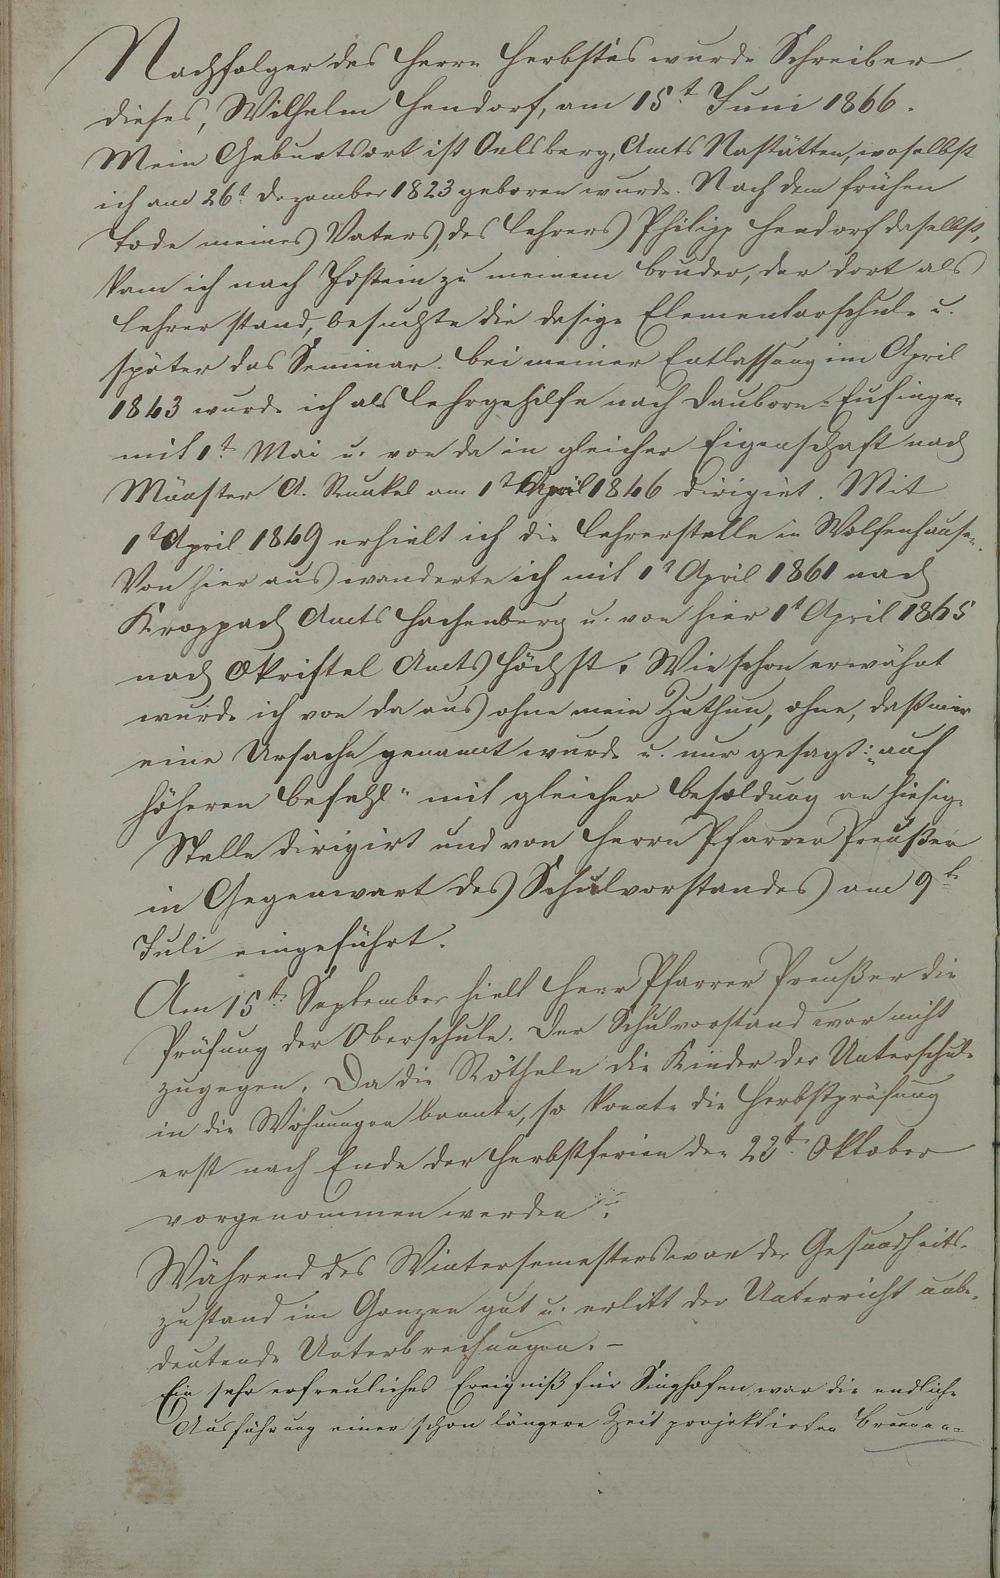 Nachfolger des Herrn Herbstes wurde Schreiber
dieses, Wilhelm Hendorf, am 15t. Juni 1866.
Mein Geburtsort ist Oelsberg, Amts Nastätten, woselbst
ich am 26t. Dezember 1823 geboren wurde. Nach dem frühen
Tode meines Vaters, des Lehrers Philipp Hendorf daselbst,
kam ich nach Idstein zu meinem Bruder, der dort als
Lehrer stand, besuchte die dasige Elementarschule u.
später das Seminar. Bei meiner Entlassung im April
1843 wurde ich als Lehrgehilfe nach Dauborn-Eufingen
mit 1t. Mai u. von da in gleicher Eigenschaft nach
Münster A. Runkel am 1t April 1846 dirigirt. Mit
1t April 1849 erhielt ich die Lehrerstelle in Wolfenhausen.
Von hier aus wanderte ich mit 1t April 1861 nach
Kroppach Amts Hachenburg u. von hier 1t April 1865
nach Okriftel Amts Höchst. Wie schon erwähnt
wurde ich von da aus ohne mein Zuthun, ohne, daß mir
eine Ursache genannt wurde u. nur gesagt: „auf
höheren Befehl" mit gleicher Besoldung an hiesige
Stelle dirigirt und von Herrn Pfarrer Preußer
in Gegenwart des Schulvorstandes am 9t.
Juli eingeführt.
Am 15t. September hielt Herr Pfarrer Preußer die
Prüfung der Oberschule. Der Schulvorstand war nicht
zugegen. Da die Rötheln die Kinder der Unterschule
in die Wohnungen bannte, so konnte die Herbstprüfung
erst nach Ende der Herbstferien den 23t. Oktober
vorgenommen werden.
Während des Wintersemesters war der Gesundheits-
zustand im Ganzen gut u. erlitt der Unterricht unbe-
deutende Unterbrechungen. –
Ein sehr erfreuliches Ereigniß für Singhofen war die endliche
Ausführung einer schon längere Zeit projektirten Brunnen-